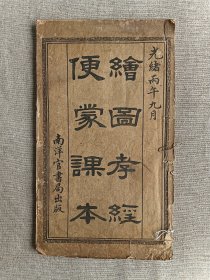 光緒丙午九月
繪圖孝經
便蒙課本
南洋官書局出版